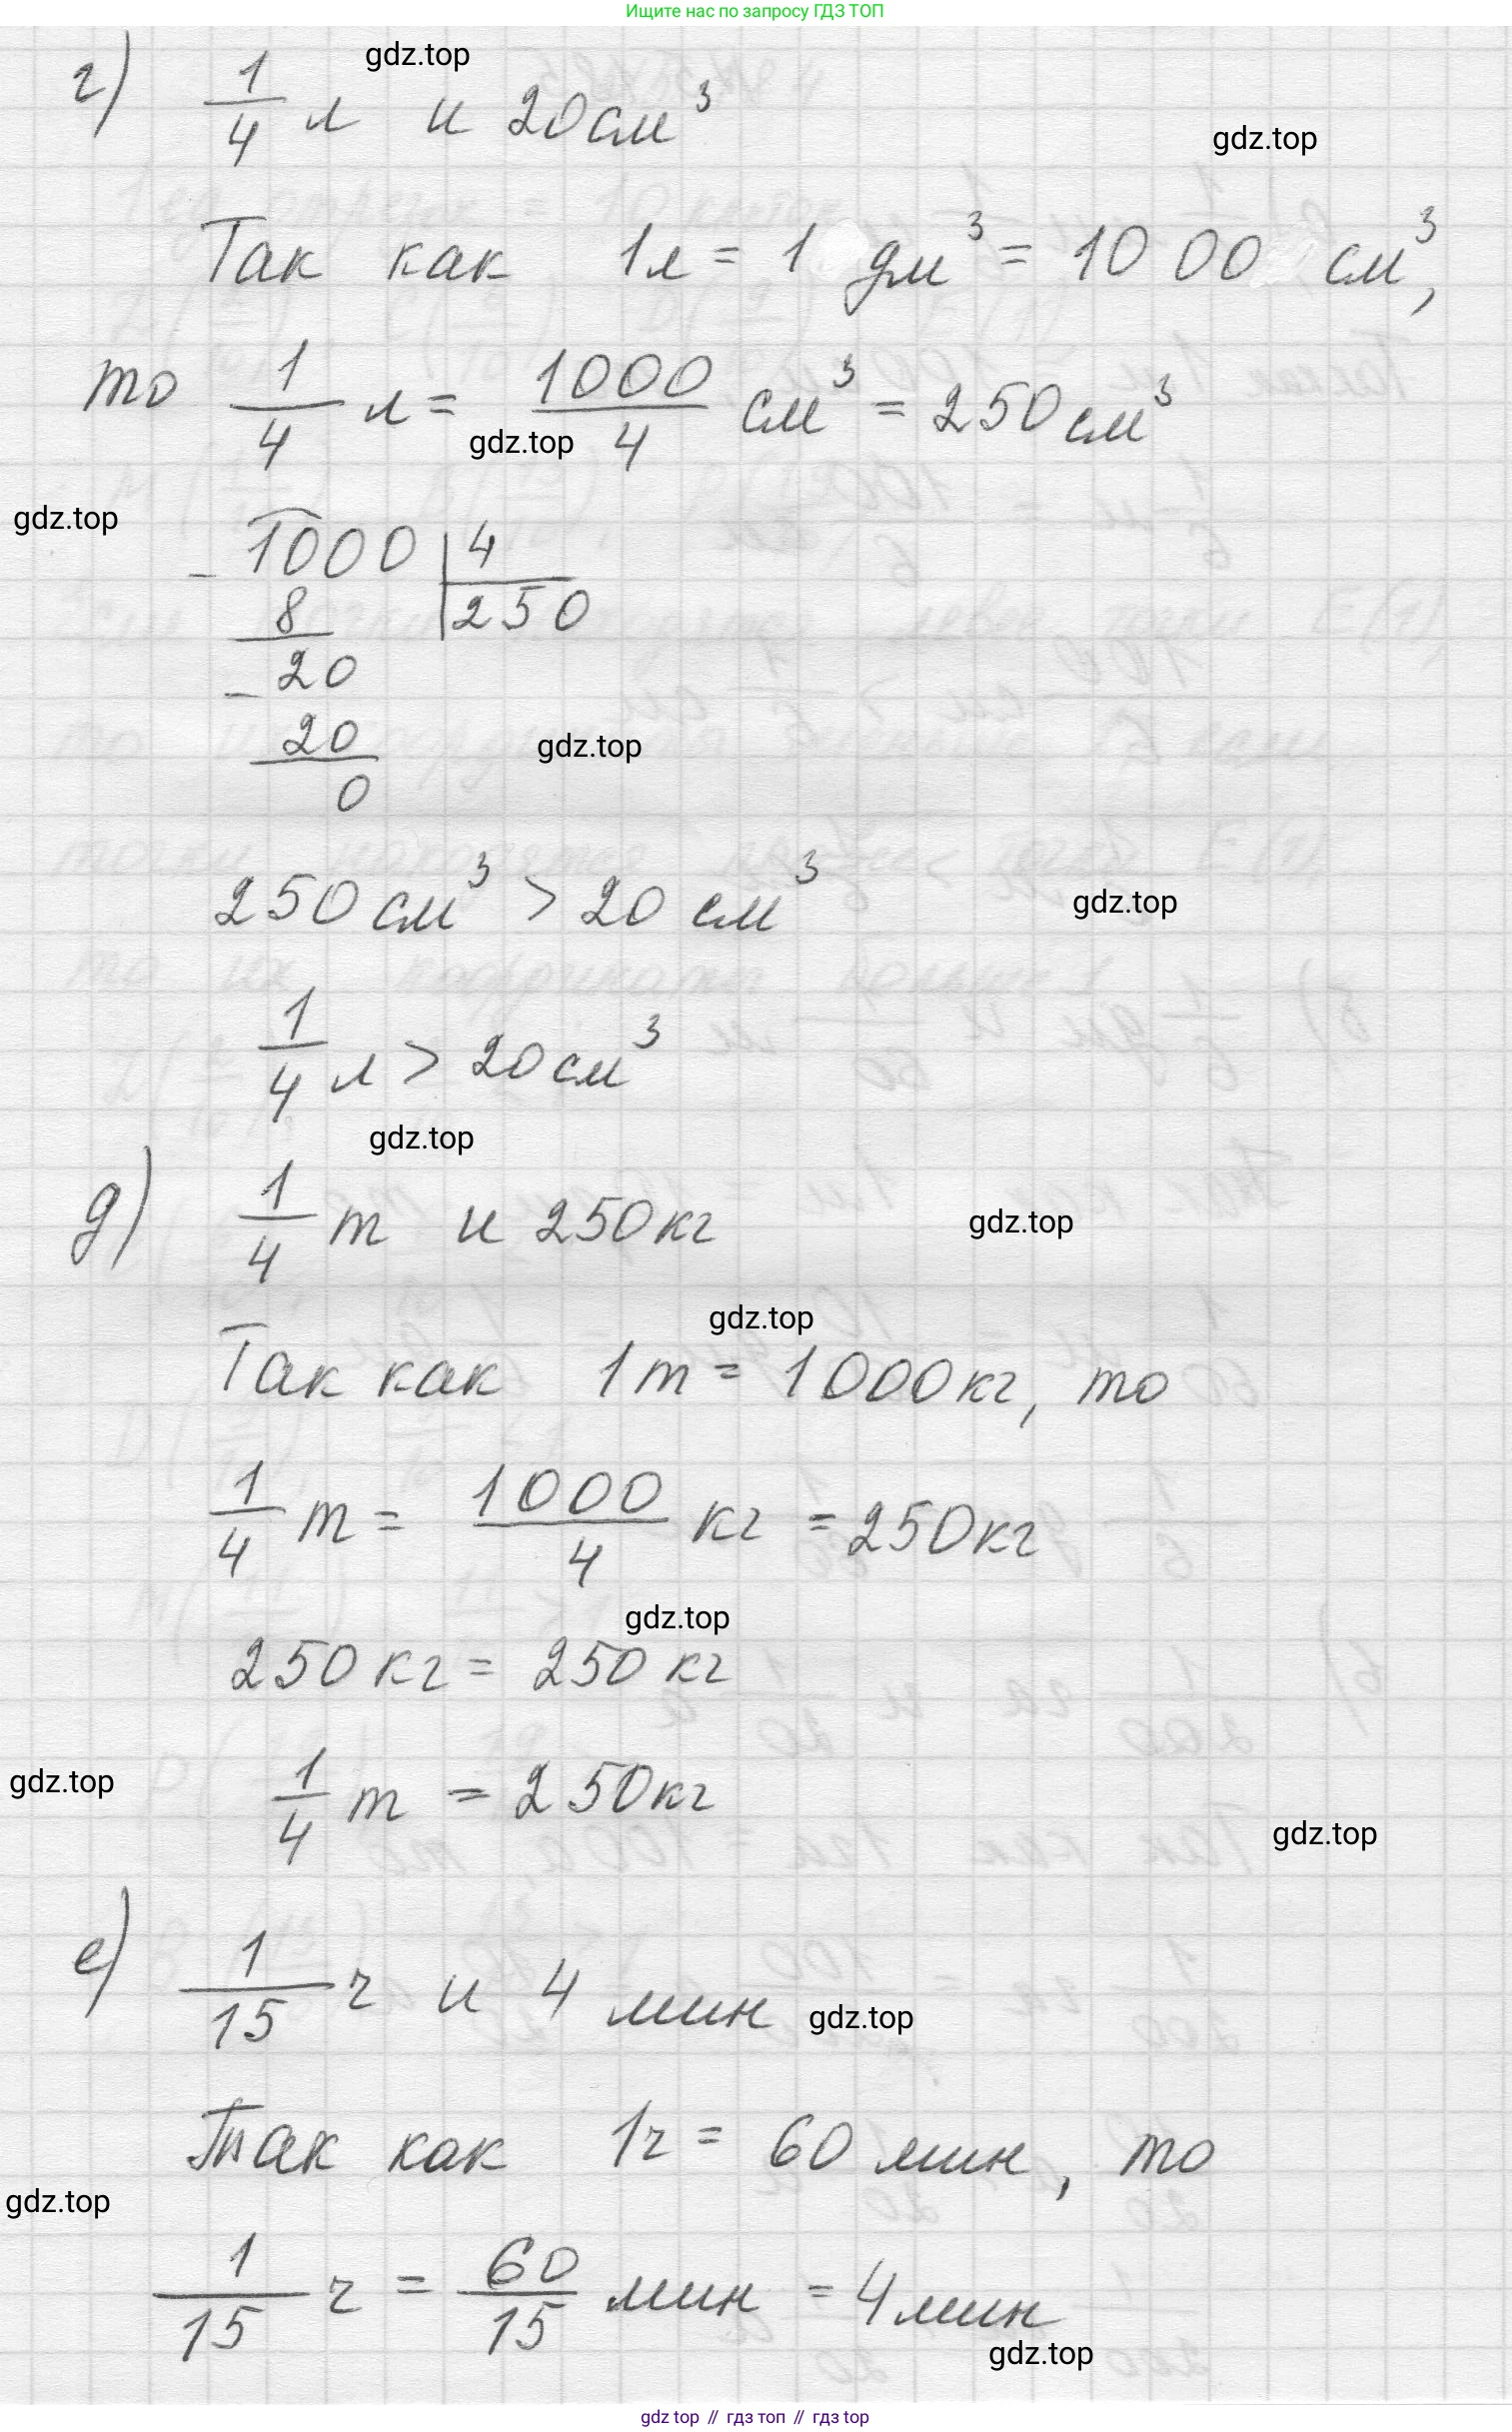 Ищите нас по запросу ГДЗ ТОП
gdz.top
г) 1/4 л и 20 см³
gdz.top
Так как 1л = 1 дм³ = 1000 см³,
то 1/4 л = 1000/4 см³ = 250 см³
gdz.top
gdz.top
1000 | 4
- 8 | 250
20
- 20
0
gdz.top
250 см³ > 20 см³
gdz.top
1/4 л > 20 см³
gdz.top
д) 1/4 т и 250 кг
gdz.top
gdz.top
Так как 1т = 1000 кг, то
1/4 т = 1000/4 кг = 250 кг
gdz.top
250 кг = 250 кг
gdz.top
1/4 т = 250 кг
gdz.top
е) 1/15 ч и 4 мин
gdz.top
Так как 1ч = 60 мин, то
gdz.top
1/15 ч = 60/15 мин = 4 мин
gdz.top
gdz top // гдз топ // гдз top